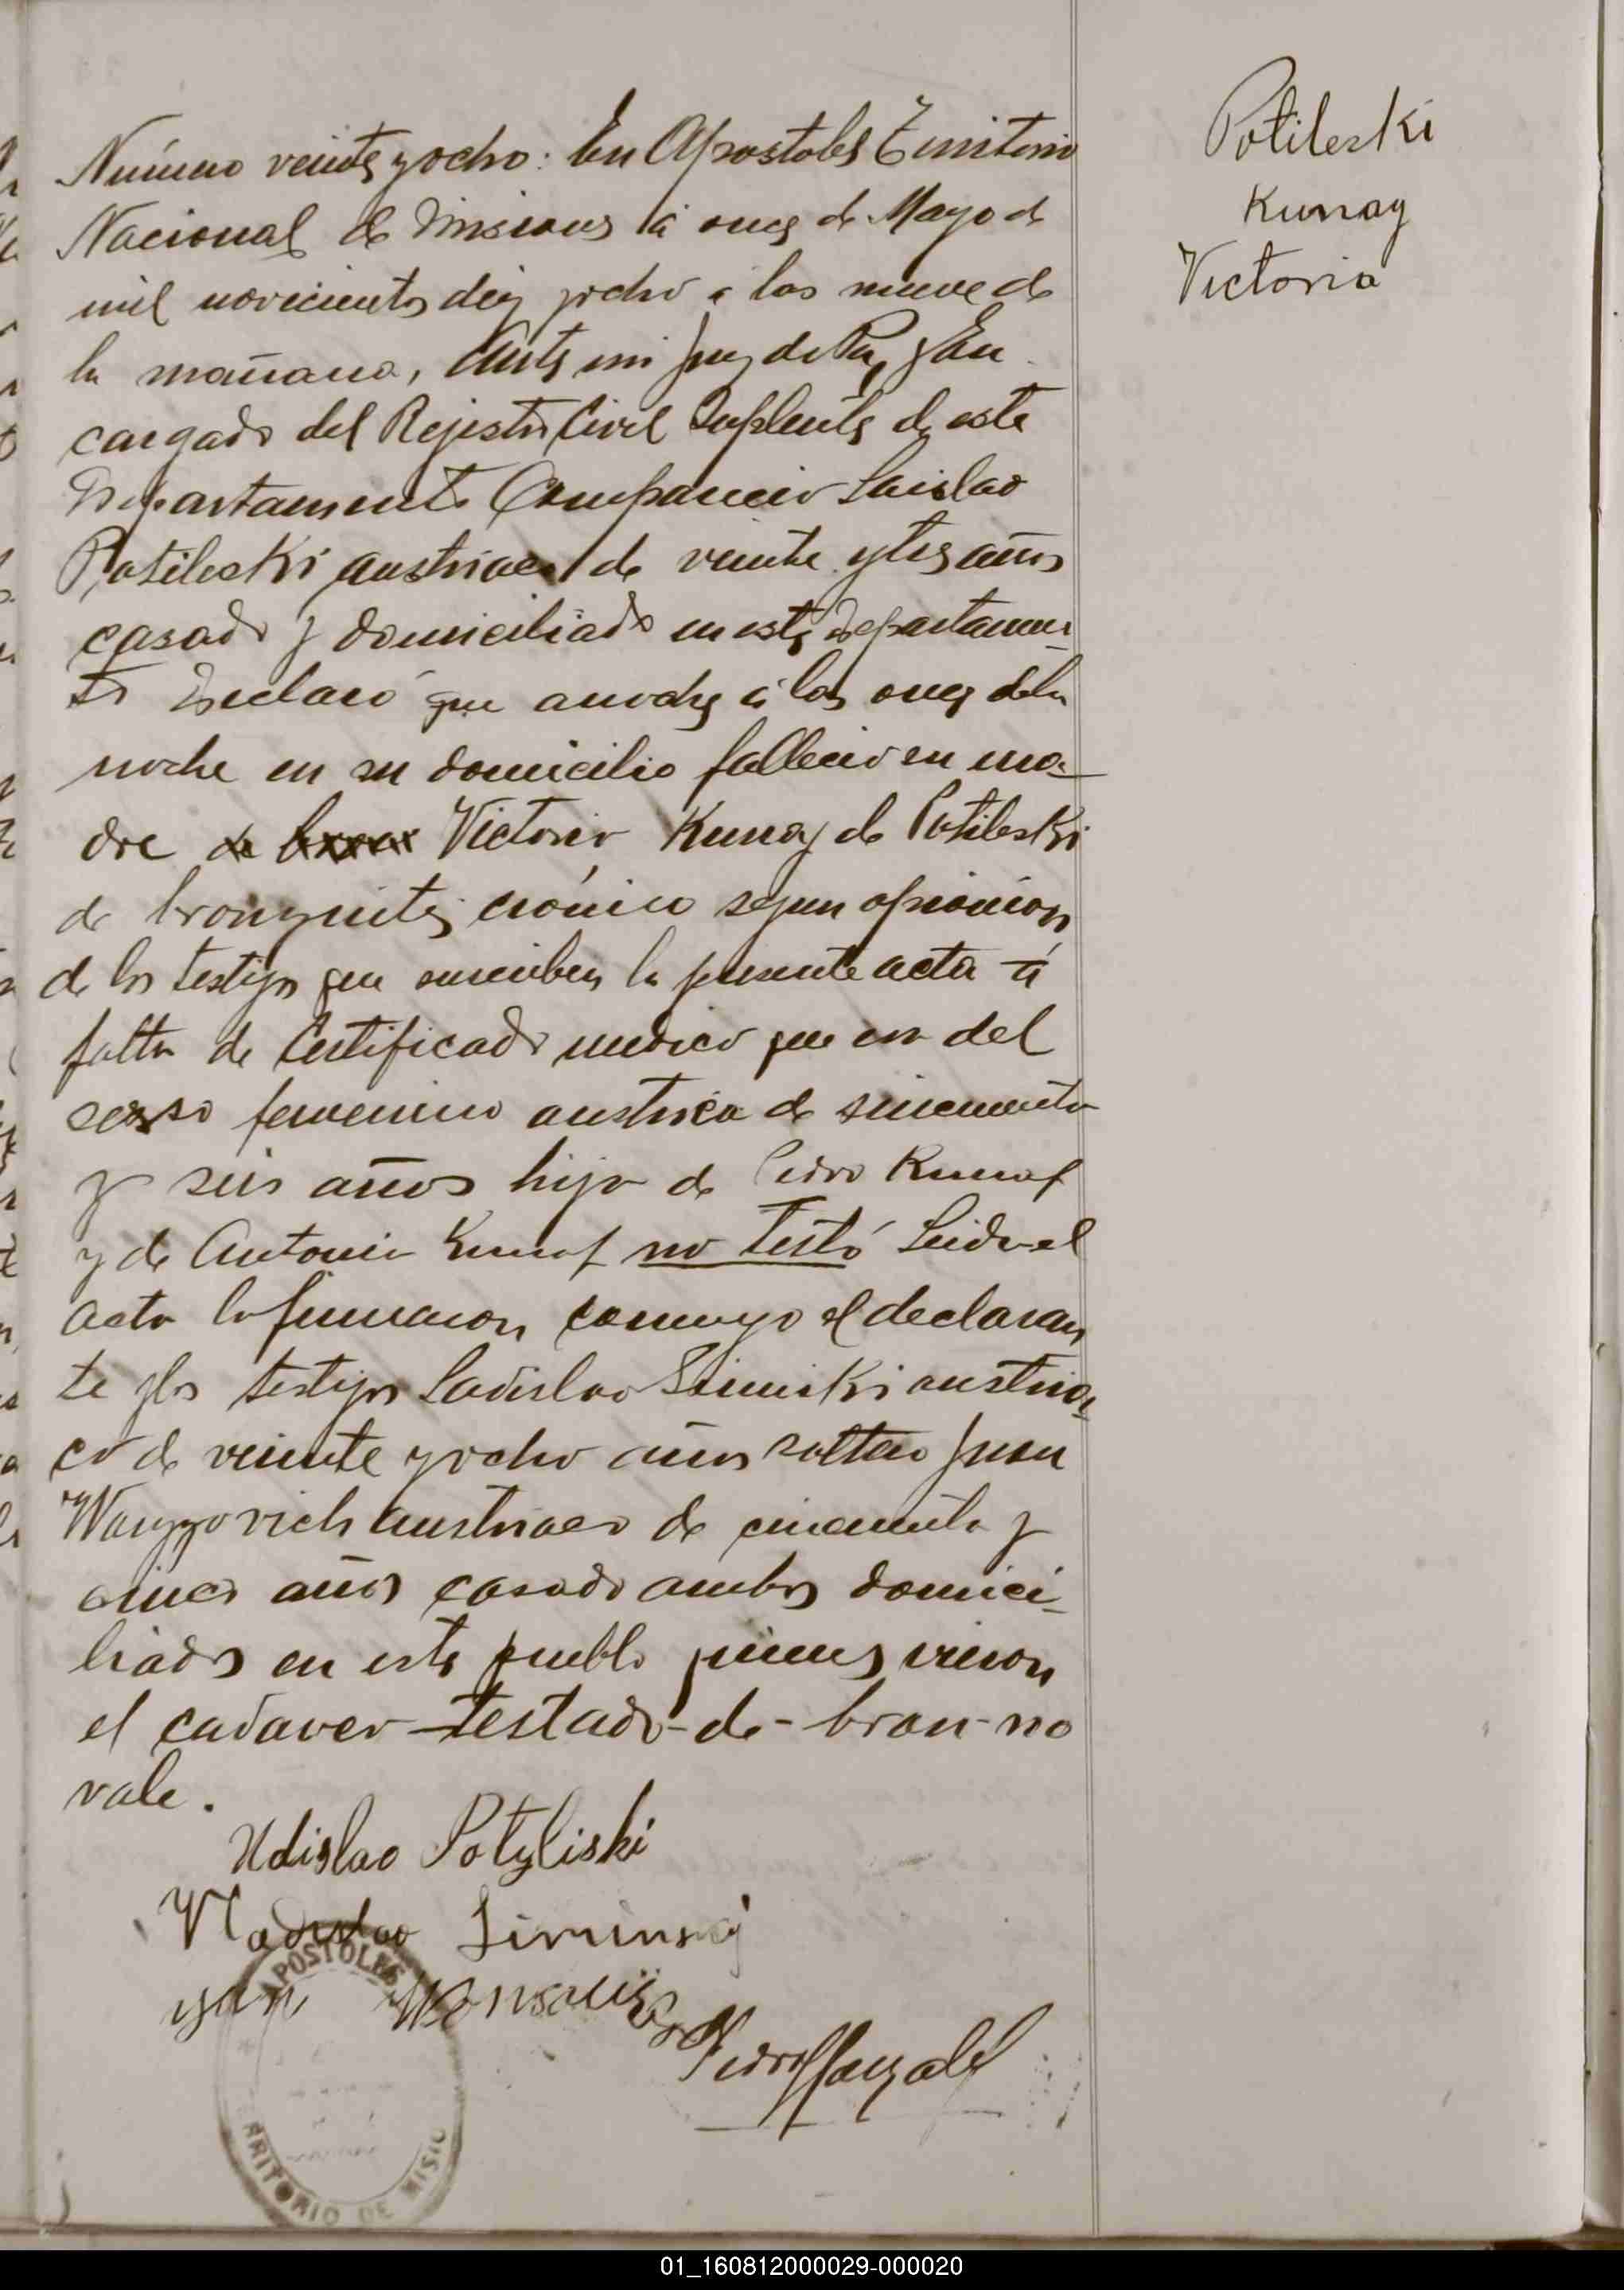 Número veinte y ocho: En Apostoles Territorio
Nacional de Misiones á once de Mayo de
mil novecientos diez y ocho á las nueve de
la mañana, Ante mi Juez de Paz y En
cargado del Rejistro Civil Suplente de este
Departamento Comparecio Laislao
Potileski austriaco de veinte y tres años
casado y domiciliado en este departamen-
to Declaró que anoche á las once de la
noche en su domicilio fallecio su ma-
dre de bron Victoria Kunay de Potileski
de bronquitis crónica segun opinion
de los testigos que suscriben la presente acta á
falta de Certificado medico que era del
sexso femenino austrica de sincuenta
y seis años hija de Pedro Kunay
y de Antonia Kunay no testó Leida el
acta la firmaron conmigo el declaran
te y los testigos Ladislao Siminski austria-
co de veinte y ocho años soltero Juan
austriaco de cincuenta y
cinco años casado ambos domici-
liados en este pueblo quienes vieron
el cadaver - testado - de - bron - no
vale.
Udislao Potyliski
Vladislao Siminski
yan
Pedro Gonzalez
APOSTOLES
RRITORIO DE MISIO
Potileski
Kunay
Victoria
01_160812000029-000020